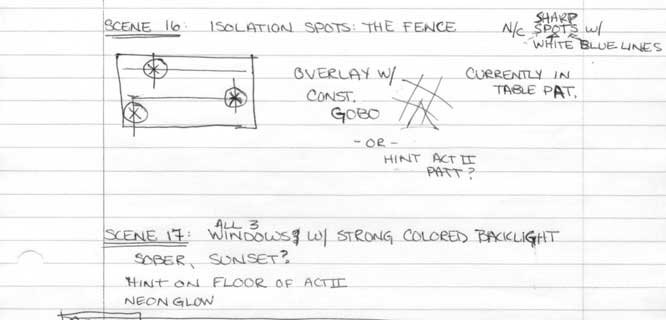 SCENE 16: ISOLATION SPOTS: THE FENCE
N/C SHARP SPOTS W/
WHITE BLUE LINES
OVERLAY W/
CONST.
GOBO
CURRENTLY IN
TABLE PAT.
- OR -
HINT ACT II
PATT?
SCENE 17: ALL 3 WINDOWS W/ STRONG COLORED BACKLIGHT
SOBER, SUNSET?
HINT ON FLOOR OF ACT II
NEON GLOW